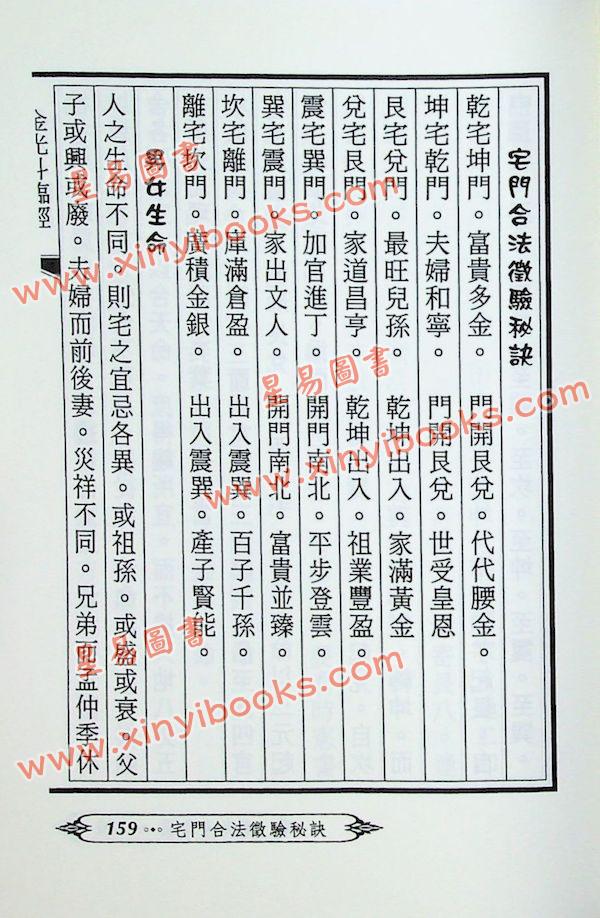 宅門合法徵驗秘訣
乾宅坤門。富貴多金。門開艮兌。代代腰金。
坤宅乾門。夫婦和寧。門開艮兌。世受皇恩
艮宅兌門。最旺兒孫。乾坤出入。家滿黃金
兌宅艮門。家道昌亨。乾坤出入。祖業豐盈。
震宅巽門。加官進丁。開門南北。平步登雲。
巽宅震門。家出文人。開門南北。富貴並臻。
坎宅離門。庫滿倉盈。出入震巽。百子千孫。
離宅坎門。廣積金銀。出入震巽。產子賢能。
男女生命
人之生命不同。則宅之宜忌各異。或祖孫。或盛或衰。父
子或興或廢。夫婦而前後妻。災祥不同。兄弟而孟仲季休
159 宅門合法徵驗秘訣
星易圖書
www.xinyibooks.com
星易圖書
www.xinyibooks.com
星易圖書
www.xinyibooks.com